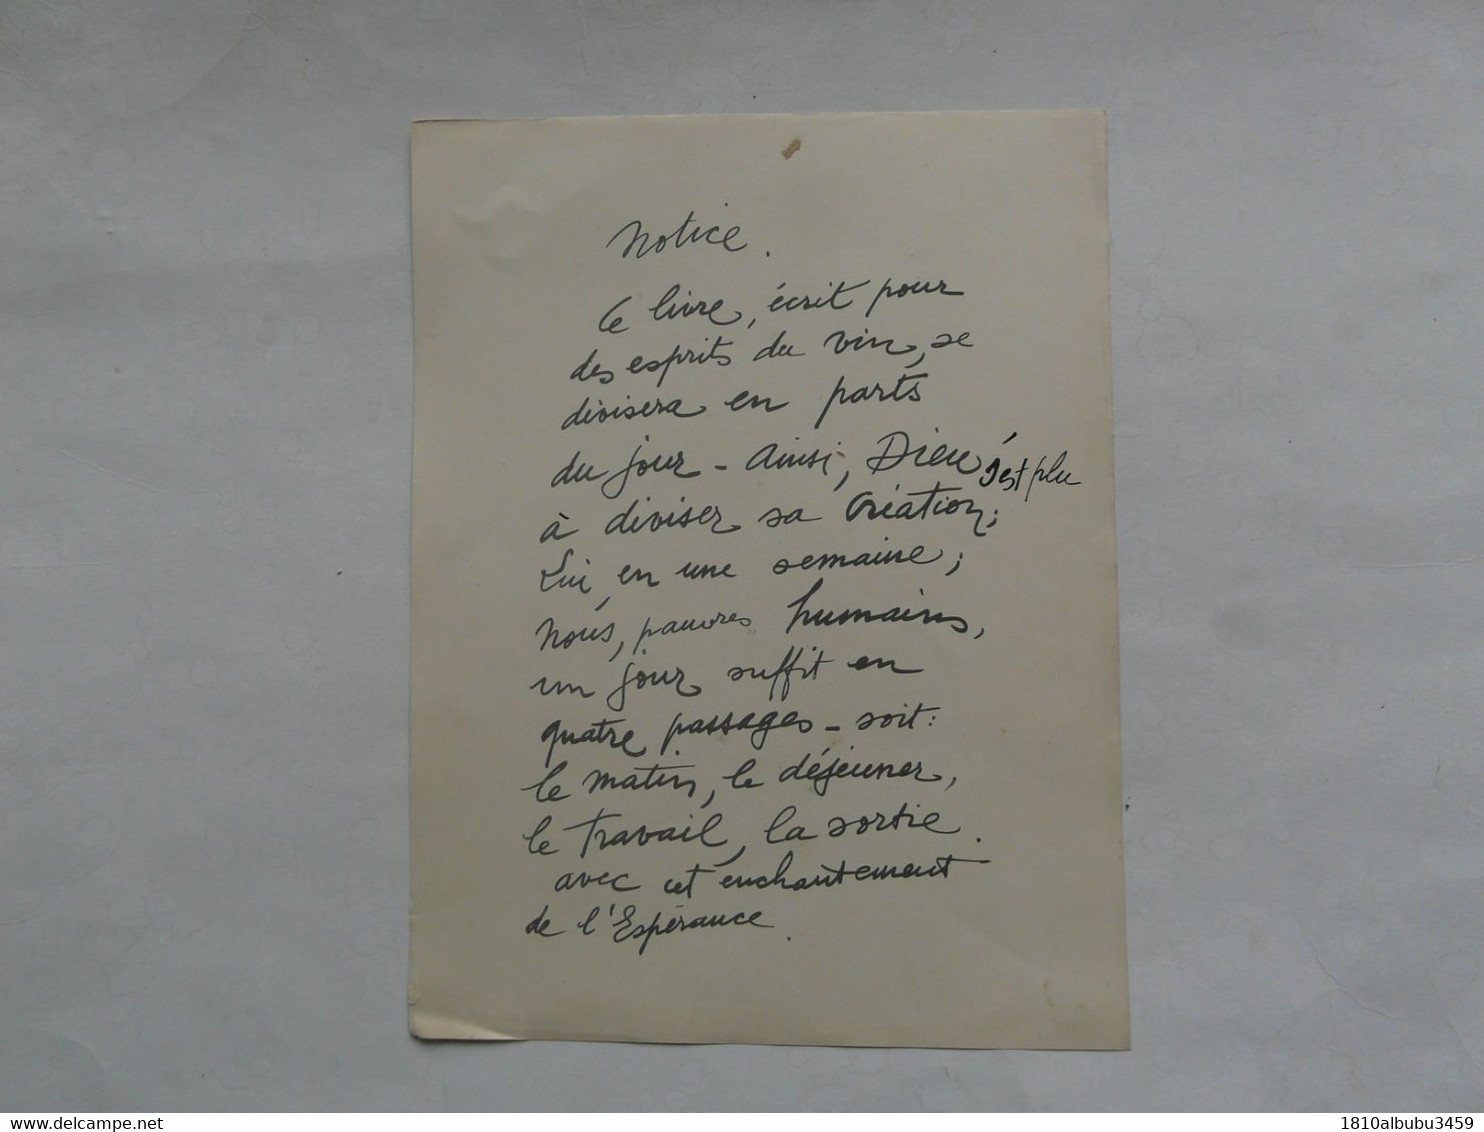 Notice.
Ce livre, écrit pour
des esprits du vin, se
divisera en parts
du jour - Ainsi, Dieu s'est plu
à diviser sa Création;
Lui, en une semaine;
Nous, pauvres humains,
un jour suffit en
quatre passages - soit:
le matin, le déjeuner,
le travail, la sortie.
avec cet enchantement
de l'Espérance.
delcampe.net
1810albubu3459